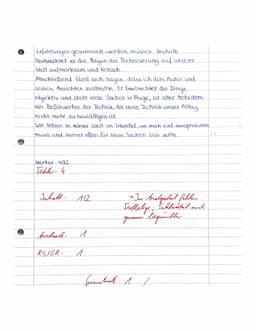 Erfahrungen gesammelt werden müssen. Deshalb
betrachtet er die Folgen der Technisierung auf unsere
Welt aufmerksam und kritisch.
Abschließend lässt sich sagen, dass ich dem Autor und
seinen Ansichten zustimme. Er betrachtet die Dinge
objektiv und stellt viele Sachen in Frage, ist aber trotzdem
ein Befürworter der Technik, da ohne Technik unser Alltag
nicht mehr zu bewältigen ist.
Wir leben in einer Welt im Wandel, wo man viel ausprobieren
muss und immer offen für neue Sachen sein sollte.
Wörter: 492
Fehler: 4
Inhalt: 1/2
→ Im Analyseteil fehlen
Ausdruck: 1
RS/GR: 1
1